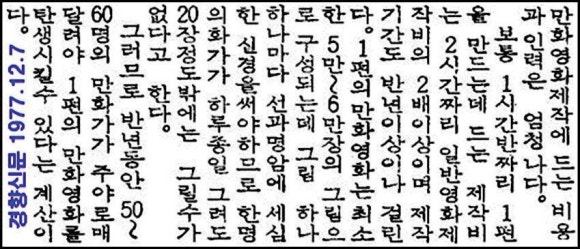 만화영화제작에 드는 비용
과 인력은 엄청나다.
보통 1시간반짜리 1편
을 만드는데 드는 제작비
는 2시간짜리 일반영화제
작비의 2배이상이며 제작
기간도 반년이상이나 걸린
다. 1편의 만화영화는 최소
한 5만~6만장의 그림으
로 구성되는데 그림 하나
하나마다 선과명암에 세심
한 신경을써야하므로 한명
의화가가 하루종일 그려도
20장정도밖에는 그릴수가
없다고 한다.
그러므로 반년동안 50~
60명의 만화가가 주야로매
달려야 1편의 만화영화를
탄생시킬수 있다는 계산이
다.
경향신문 1977.12.7